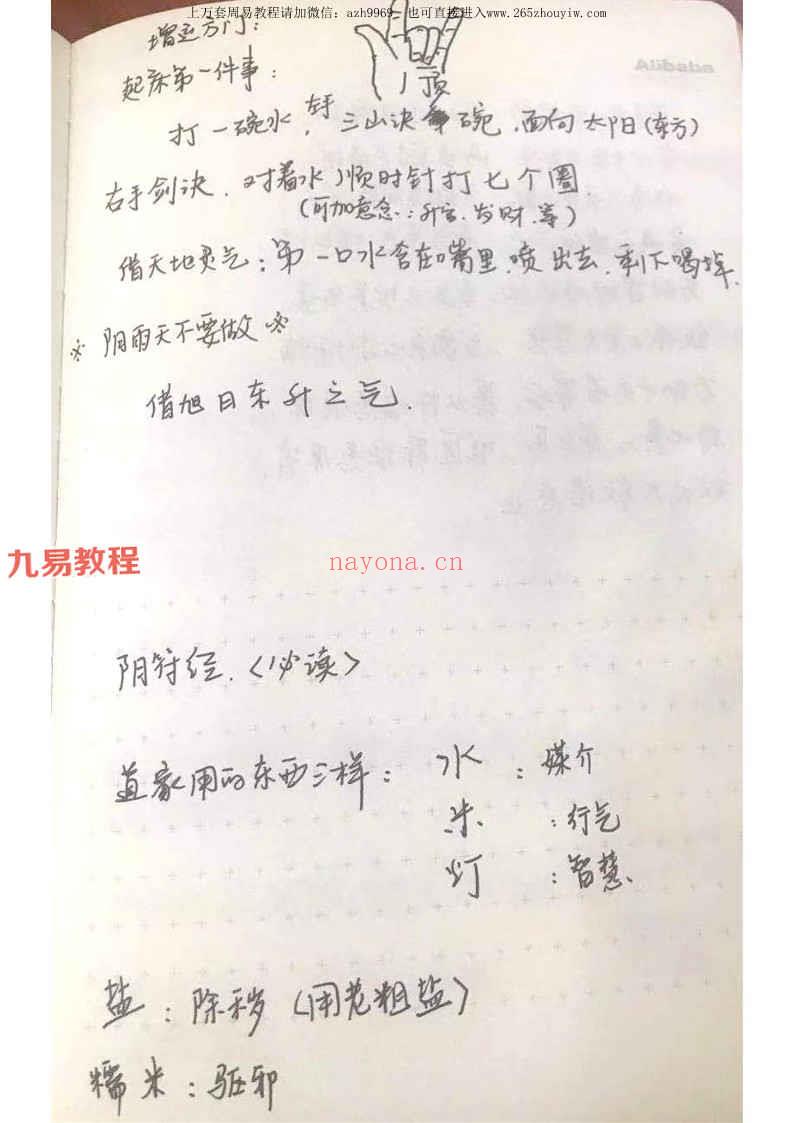 上万套周易教程请加微信：azh9969 也可直接进入www.265zhouyiw.com
增运方门：
起床第一件事：
顶
打一碗水，左手三山诀拿碗，面向太阳(东方)
右手剑诀，对着水顺时针打七个圈
(可加意念：升官，发财，等)
借天地灵气：第一口水含在嘴里，喷出去，剩下喝掉。
※阴雨天不要做※
借旭日东升之气。
九易教程
nayona.cn
阴符经。<必读>
道家用的东西三样：水：媒介
米：行气
灯：智慧、
盐：除秽(用老粗盐)
糯米：驱邪